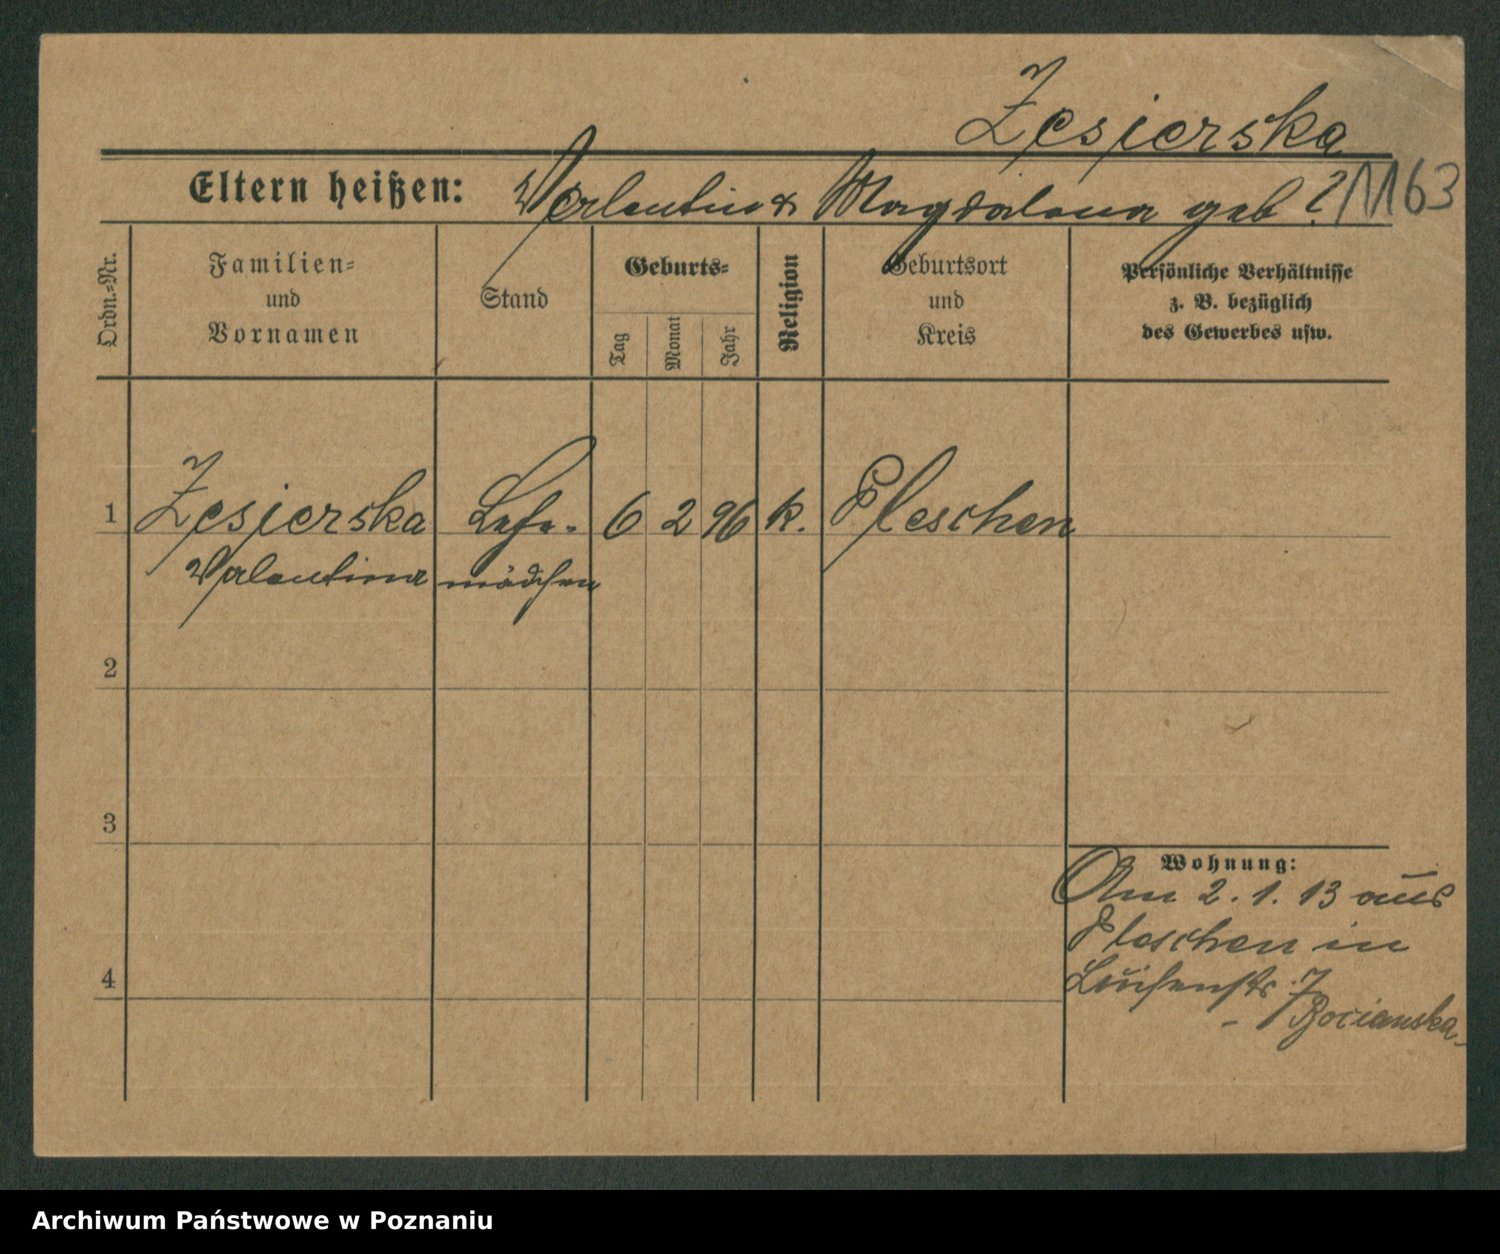 Zesierska
Eltern heißen: Valentin & Magdalena geb ? 1163
Ordn.-Nr.
Familien-
und
Vornamen
Stand
Geburts-
Tag
Monat
Jahr
Religion
Geburtsort
und
Kreis
Persönliche Verhältnisse
z. B. bezüglich
des Gewerbes usw.
1 Zesierska Lehr- 6 2 96 k. Pleschen
Valentina mädchen
2
3
Wohnung:
Am 2. 1. 13 aus
Pleschen in
4 Luisenstr. 7
- Bocianska -
Archiwum Państwowe w Poznaniu